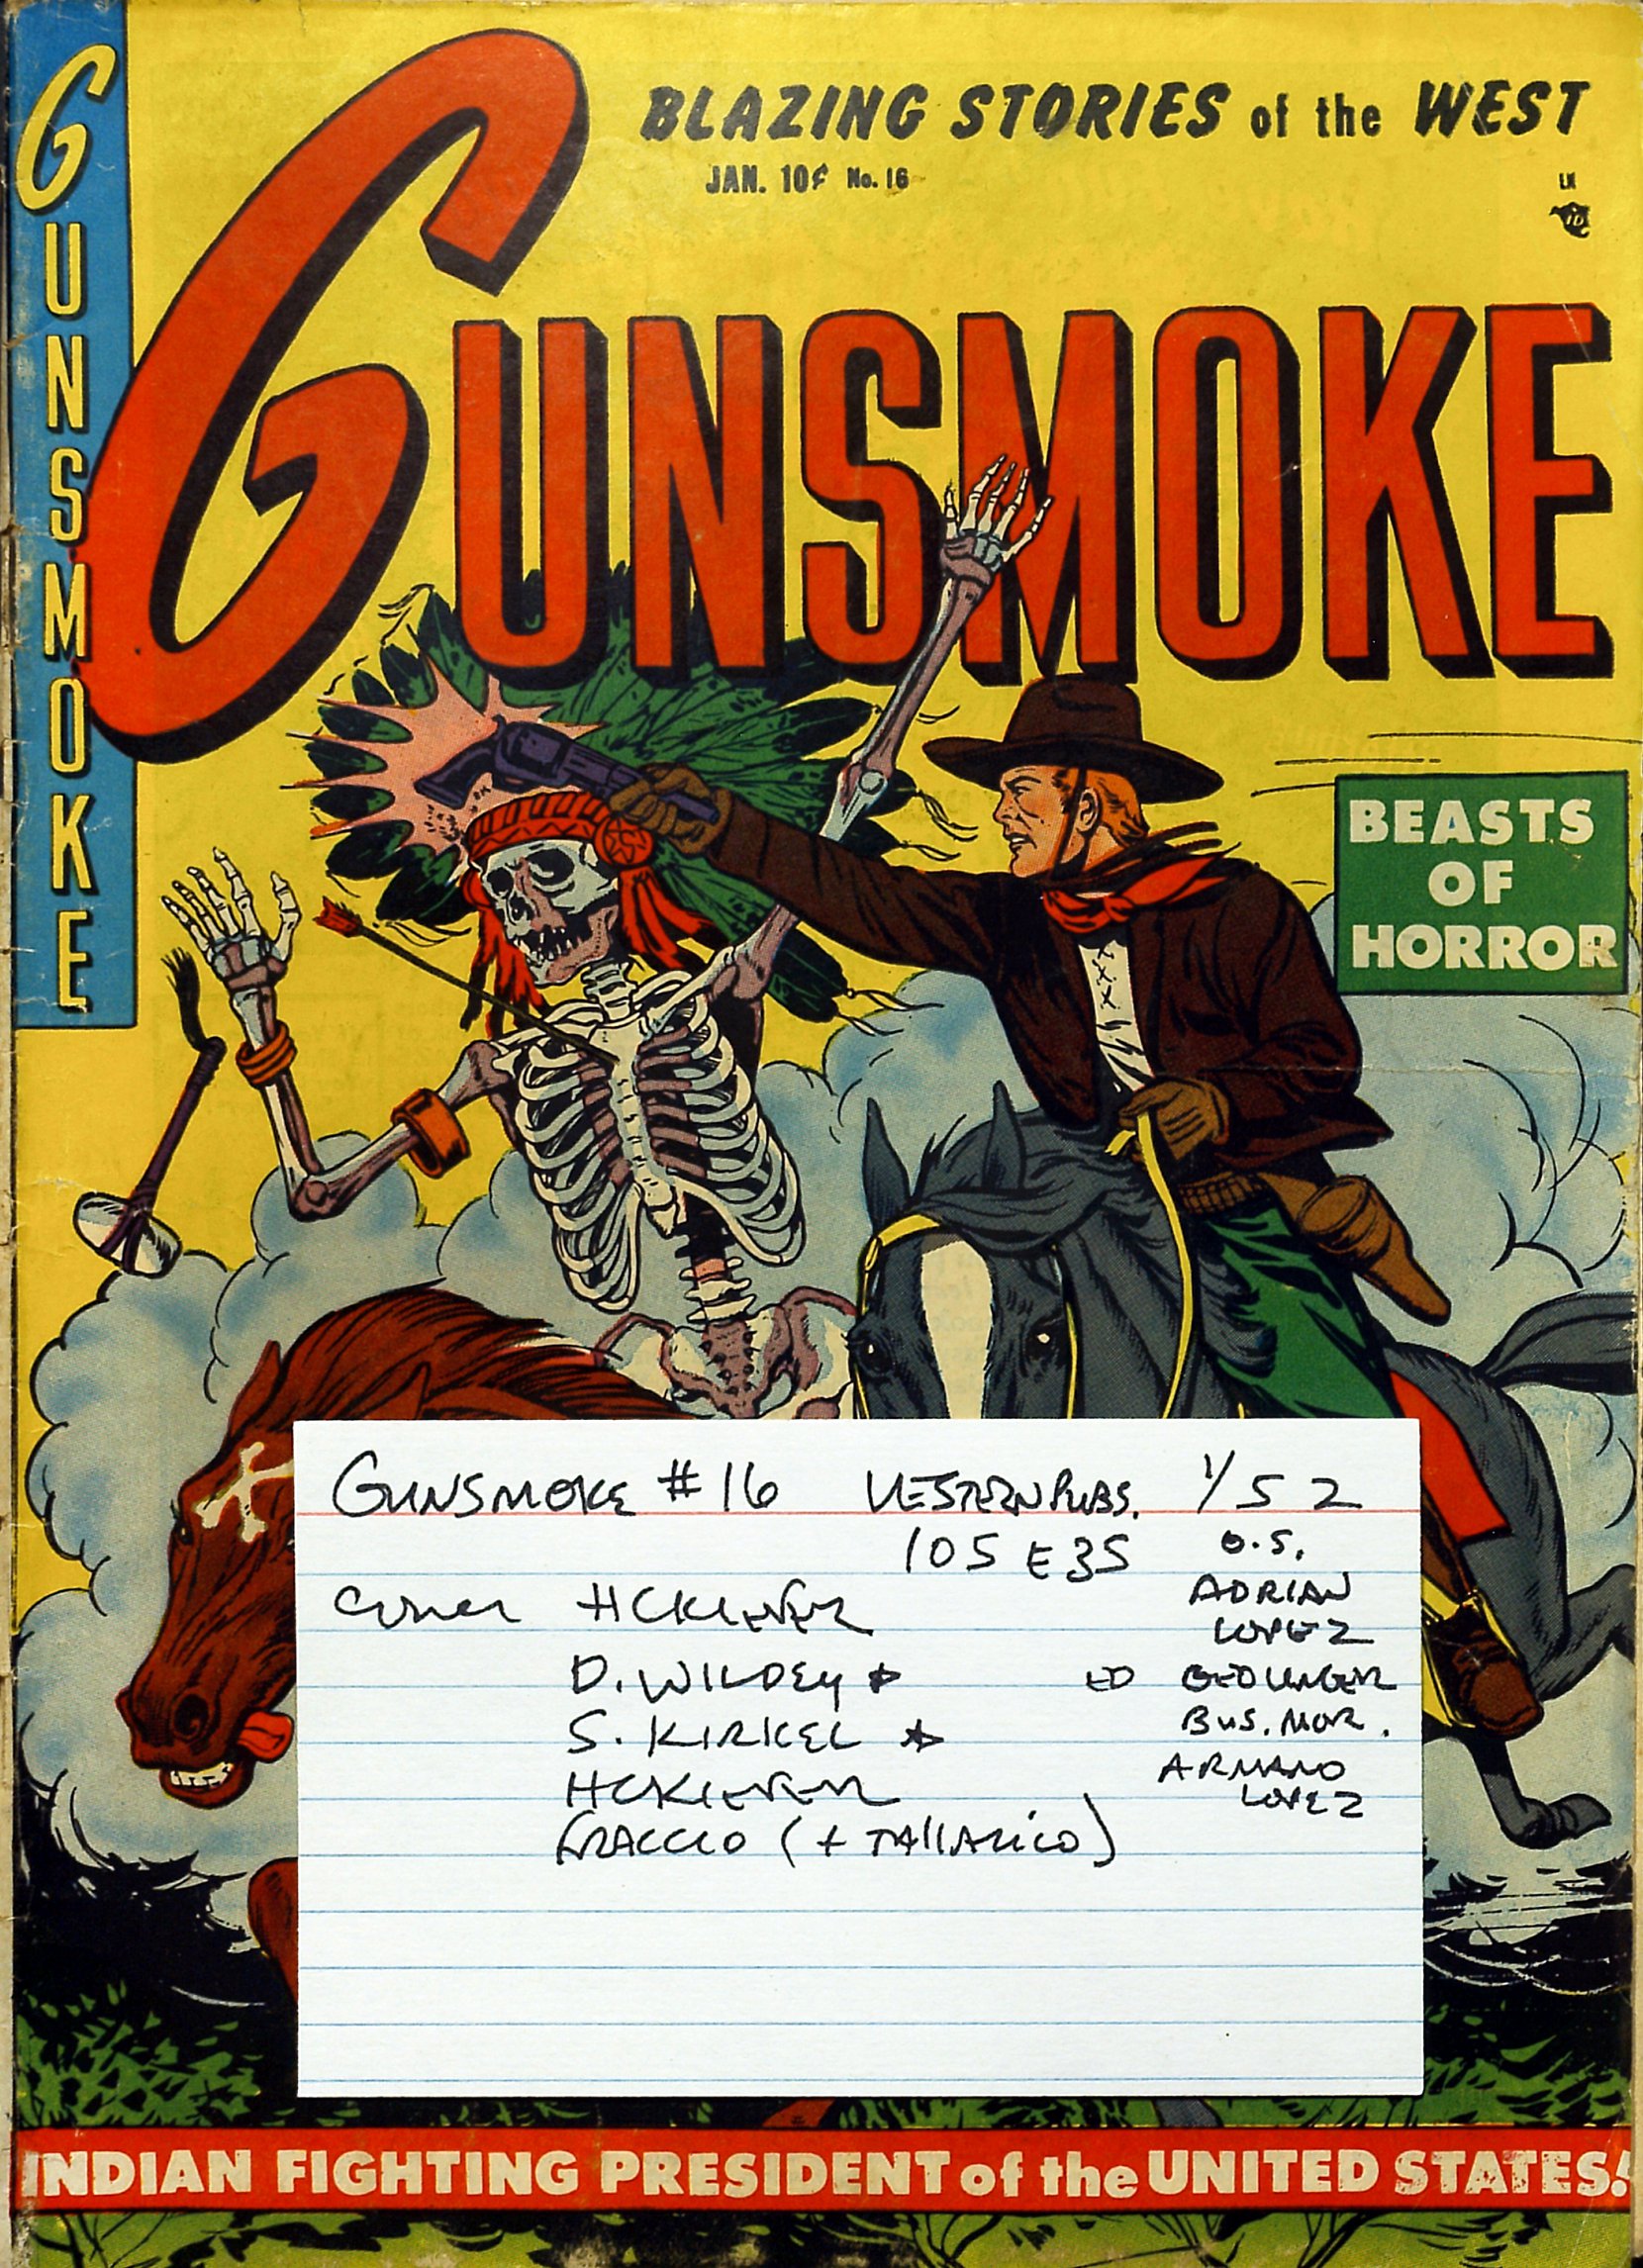 GUNSMOKE
BLAZING STORIES of the WEST
JAN. 10¢ No. 16
LK
10
GUNSMOKE
BEASTS
OF
HORROR
GUNSMOKE #16 WESTERN PUBS. 1/52
105 E 35 O.S.
ADRIAN
LOPEZ
COVER HCKIEFER
D. WILDEY ☆
ED
S. KIRKEL ☆
BUS. MGR.
HCKIEFER
ARMAND
LOPEZ
FRACCIO (+ TALLARICO)
INDIAN FIGHTING PRESIDENT of the UNITED STATES!